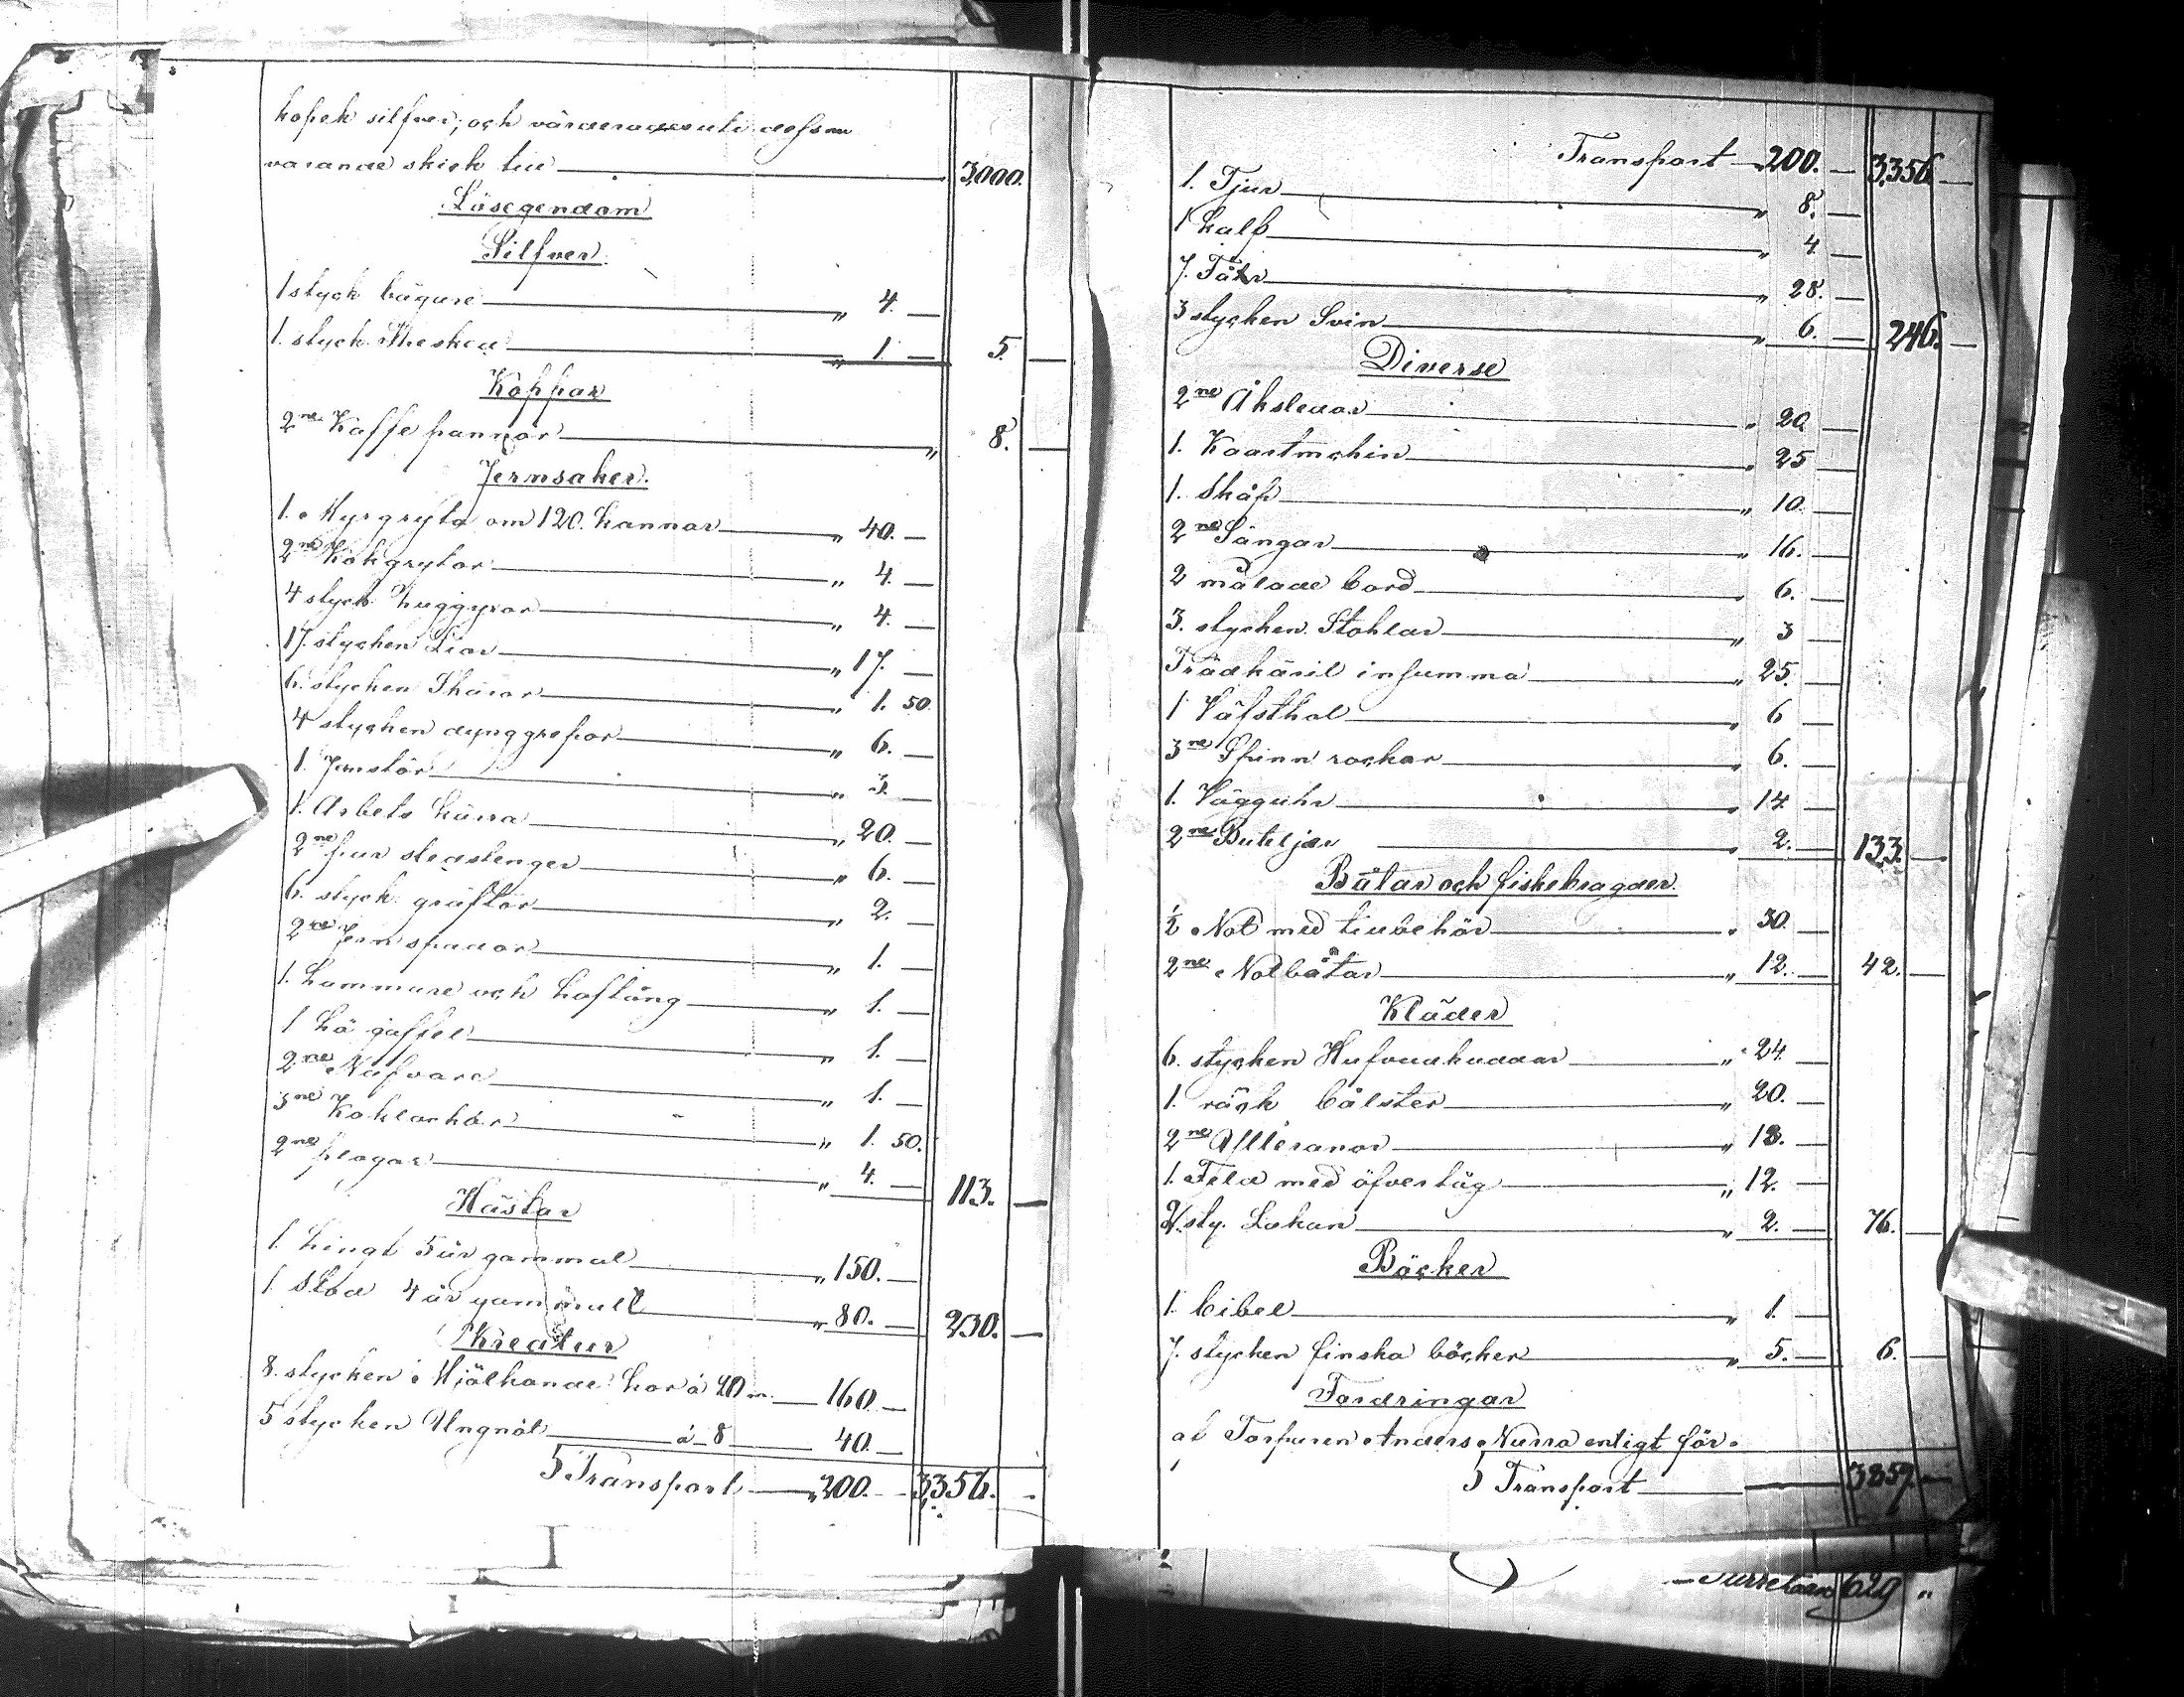 kopek silfver; och värderades uti dess nu
varande skick till 3,000.
Lösegendom
Silfver.
1 styck bägare " 4. —
1. styck Thesked " 1. — 5. —
Koppar
2ne Kaffe pannor " 8. —
Jernsaker.
1. Myrgryta om 120. kannor " 40. —
2ne Kokgrytor " 4. —
4 styck huggyxor " 4. —
17. stycken Liar " 17. —
6. stycken Skäror " 1. 50.
4 stycken dynggrepar " 6. —
1. Jernstör " 3. —
1. Arbets kärra " 20. —
2ne par stedstenger " 6. —
6. styck gräftor " 2. —
2ne Jernspador " 1. —
1. hammare och hoftång " 1. —
1 hö gaffel " 1. —
2ne Nafvare " 1. —
3ne Koklackor " 1. 50.
2ne plogar " 4. — 113. —
Hästar
1. hingt 5 år gammal " 150. —
1. Stod 4 år gammalt " 80. — 230. —
Kreatur
8. stycken Mjölkande kor à 20 m. 160. —
5 stycken Ungnöt à 8 40. —
Transport " 200. — 3,356. —
Transport 200. — 3,356 —
1. Tjur " 8. —
1 kalf " 4 —
7. Får " 28. —
3 stycken Svin " 6. — 246. —
Diverse
2ne Åkslädar " 20 —
1. Kaartmchin " 25 —
1. Skåp " 10. —
2ne Sängar " 16. —
2 målade bord " 6. —
3. stycken Stohlar " 3 —
Trädkäril insumma " 25. —
1 Väfsthol " 6 —
3ne Spinn rockar " 6. —
1. Vägguhr " 14 —
2ne Buteljer " 2. — 133. —
Båtar och fiskebragder.
½ Not med tillbehör " 30. —
2ne Notbåtar " 12. — 42. —
Kläder
6. stycken Hufvudkuddar " 24 —
1. räck bålster " 20. —
2ne Ylleranor " 18. —
1. Fäld med öfvertåg " 12. —
2. sty. Lakan " 2. — 76. —
Böcker
1. bibel " 1. —
7. stycken finska böcker " 5. — 6. —
Fordringar
af Torparen Anders Nurra enligt för-
Transport 3859. —
629 "